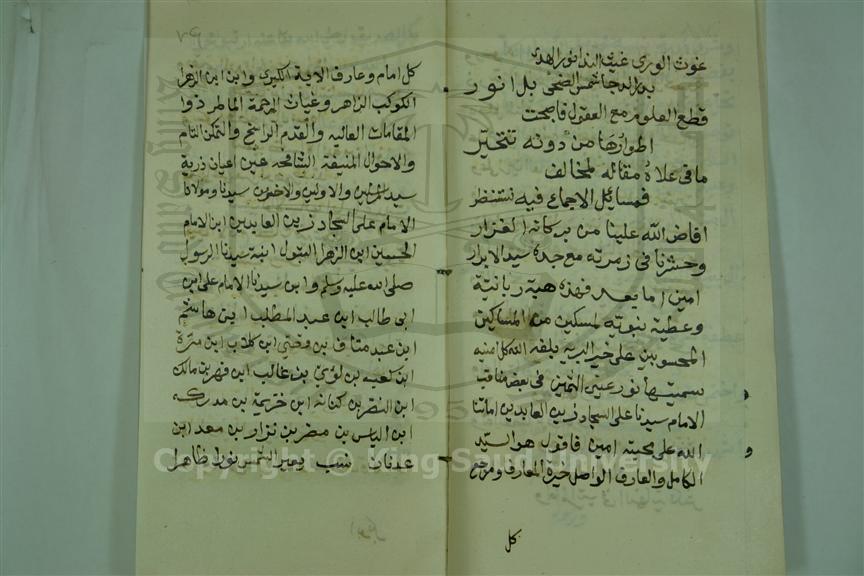 غوث الورى غيث الندا نور الهدى
بدر الدجا شمس الضحى بل انور
قطع العلوم مع العقول فاصبحت
اطوارها من دونه تتحير
ما فى علاه مقاله لمخالف
فمسائل الاجماع فيه تستنظر
افاض الله علينا من بركاته الغزار
وحشرنا فى زمرته مع جده سيد الابرار
امين اما بعد فهذه هبة ربانية
وعطية نبوية لمسكين من المساكين
المحسوبين على خير البريه بلغه الله كل امنيه
سميتها نور عينى الثمين فى بعض مناقب
الامام سيدنا على السجاد زين العابدين اماتنا
الله على محبته امين فاقول هو السيد
الكامل والعارف الواصل خيرة المعارف ومرجع
كل
كل امام وعارف الاية الكبرى وابن ابن الزهرا
الكوكب الزاهر وغياث الرحمة الماطر ذوا
المقامات العاليه والقدم الراسخ والتمكن التام
والاحوال المنيفة الشامخه عين اعيان ذرية
سيد المرسلين والاولين والاخرين سيدنا ومولانا
الامام على السجاد زين العابدين ابن الامام
الحسين ابن الزهرا البتول ابنة سيدنا الرسول
صلى الله عليه وسلم وابن سيدنا الامام على ابن
ابى طالب ابن عبد المطلب ابن هاشم
ابن عبد مناف بن وقصي ابن كلاب ابن مرة
ابن كعب بن لؤي بن غالب ابن فهر بن مالك
ابن النضر بن كنانه ابن خزيمة بن مدركه
ابن الياس بن مضر بن نزار بن معد ابن
عدنان نسب يعير الشمس نورا ظاهرا
Copyright © King Saud University